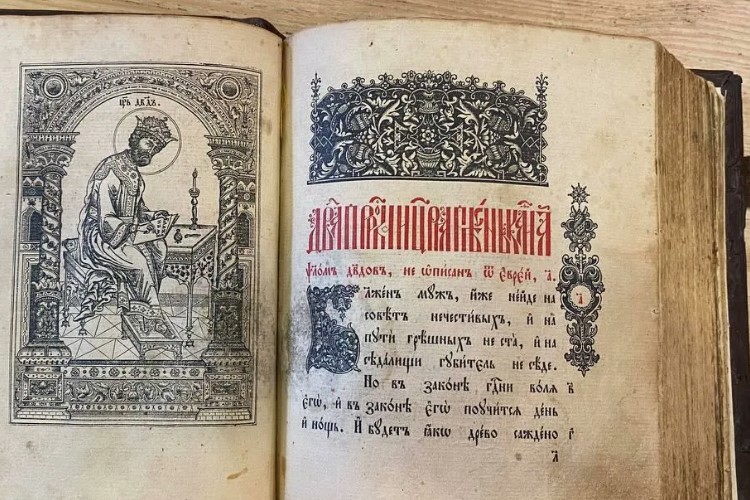 цр҃ь дв҃дъ.
Дв҃да прⷪ҇рка и цр҃ѧ пѣснь
Ѱало́мъ дв҃довъ, не ѡ҆пи́санъ ѿ є҆вре́й, а҃.
Блаже́нъ мꙋ́жъ, и҆́же не и҆́де на
совѣ́тъ нечести́выхъ, и҆ на
пꙋти̂ грѣ́шныхъ не ста̀, и҆ на
сѣда́лищи гꙋби́тель не сѣ́де.
Но въ зако́нѣ гдн҃и во́лѧ в
є҆гѡ̀, и҆ въ зако́нѣ є҆гѡ̀ поꙋчи́тсѧ де́нь
и҆ но́щь. И҆ бꙋ́детъ ꙗ҆́кѡ дре́во сажде́но г
а҃
а҃